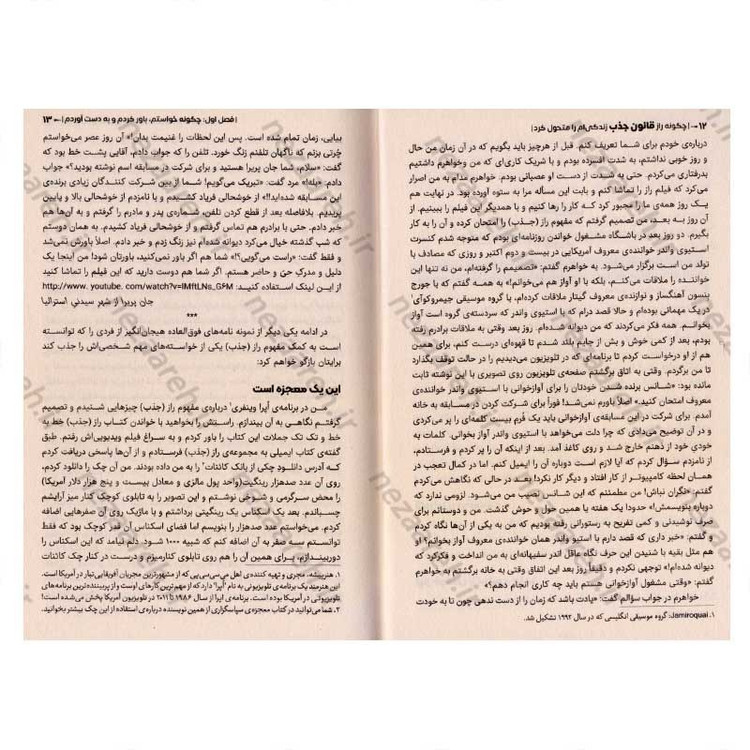 ۱۲ ~ | چگونه راز قانون جذب زندگی‌ام را متحول کرد |
درباره‌ی خودم برای شما تعریف کنم. قبل از هرچیز باید بگویم که در آن زمان من حال
و روز خوبی نداشتم، به شدت افسرده بودم و با شریک کاری‌ای که من وخواهرم داشتیم
بدرفتاری می‌کردم. حتی به شدت از دست او عصبانی بودم. خواهرم مدام به من اصرار
می‌کرد که فیلم راز را تماشا کنم و بابت این مسأله مرا به ستوه آورده بود. در نهایت هم
یک روز همه‌ی ما را مجبور کرد که کار را رها کنیم و با همدیگر این فیلم را ببینیم. از
آن روز به بعد، من تصمیم گرفتم که مفهوم راز (جذب) را امتحان کرده و آن را به کار
بگیرم. دو روز بعد در باشگاه مشغول خواندن روزنامه‌ای بودم که متوجه شدم کنسرت
استیوی واندر خواننده‌ی معروف آمریکایی در بیست و دوم اکتبر و روزی که مصادف با
تولد من است برگزار می‌شود. به خواهرم گفتم: «تصمیمم را گرفته‌ام، من نه تنها این
خواننده را ملاقات می‌کنم، بلکه با او آواز هم می‌خوانم!» به همه گفتم که با جورج
بنسون آهنگساز و نوازنده‌ی معروف گیتار ملاقات کرده‌ام، با گروه موسیقی جیمروکوآی۱
در یک مهمانی بوده‌ام و حالا قصد دارم که با استیوی واندر که سردسته‌ی گروه است آواز
بخوانم. همه فکر می‌کردند که من دیوانه شده‌ام. روز بعد وقتی به ملاقات برادرم رفته
بودم، بعد از کمی خوش و بش از جایم بلند شدم تا قهوه‌ای درست کنم، برای همین
هم از او درخواست کردم تا برنامه‌ای که در تلویزیون می‌دیدیم را در حالت توقف بگذارد
تا من برگردم. وقتی به اتاق برگشتم صفحه‌ی تلویزیون روی تصویری با این نوشته ثابت
مانده بود: «شانس برنده شدن خودتان را برای آوازخوانی با استیوی واندر خواننده‌ی
معروف امتحان کنید.» اصلاً باورم نمی‌شد! فوراً برای شرکت کردن در مسابقه به خانه
آمدم. برای شرکت در این مسابقه‌ی آوازخوانی باید یک فرم بیست کلمه‌ای را پر می‌کردی
و در آن توضیح می‌دادی که چرا دلت می‌خواهد با استیوی واندر آواز بخوانی. کلمات به
خودی خود از ذهنم خارج شد و روی کاغذ آمد. بعد از اینکه آن را پر کردم و فرستادم،
از نامزدم سؤال کردم که آیا لازم است دوباره آن را ایمیل کنم. اما در کمال تعجب در
همان لحظه کامپیوتر از کار افتاد و دیگر کار نکرد! بعد در حالی که نگاهش می‌کردم
گفتم: «نگران نباش! من مطمئنم که این شانس نصیب من می‌شود. لزومی ندارد که
دوباره بنویسمش!» حدودا یک هفته با همین حول و حوش گذشت. من و دوستانم برای
صرف نوشیدنی و کمی تفریح به رستورانی رفته بودیم که من به یکی از آن‌ها نگاه کردم
و گفتم: «خبر داری که قصد دارم با استیو واندر همان خواننده‌ی معروف آواز بخوانم؟ او
هم مثل بقیه با شنیدن این حرف نگاه عاقل اندر سفیهانه‌ای به من انداخت و فکرکرد که
دیوانه شده‌ام!» توجهی نکردم و دقیقاً روز بعد این اتفاق وقتی به خانه برگشتم به خواهرم
گفتم: «وقتی مشغول آوازخوانی هستم باید چه کاری انجام دهم؟»
خواهرم در جواب سؤالم گفت: «یادت باشد که زمان را از دست ندهی چون تا به خودت
۱. Jamiroquai: گروه موسیقی انگلیسی که در سال ۱۹۹۲ تشکیل شد.
| فصل اول: چگونه خواستم، باور کردم و به دست آوردم | ~ ۱۳
بیایی، زمان تمام شده است. پس این لحظات را غنیمت بدان!» آن روز عصر می‌خواستم
چُرتی بزنم که ناگهان تلفنم زنگ خورد. تلفن را که جواب دادم، آقایی پشت خط بود که
گفت: «سلام، شما جان پریرا هستید و برای شرکت در مسابقه اسم نوشته بودید؟» جواب
دادم: «بله!» مرد گفت: «تبریک می‌گویم! شما از بین شرکت کنندگان زیادی برنده‌ی
این مسابقه شده‌اید!!» از خوشحالی فریاد کشیدم و با نامزدم از خوشحالی بالا و پایین
پریدیم. بلافاصله بعد از قطع کردن تلفن، شماره‌ی پدر و مادرم را گرفتم و به آن‌ها هم
خبر دادم. حتی با برادرم هم تماس گرفتم و از خوشحالی فریاد کشیدم. به همان دوستم
که شب گذشته خیال می‌کرد دیوانه شده‌ام نیز زنگ زدم و خبر دادم. اصلاً باورش نمی‌شد
و فقط گفت: «راست می‌گویی؟!» شما هم اگر باور نمی‌کنید، باورتان شود! من اینجا یک
دلیل و مدرکِ حیّ و حاضر هستم. اگر شما هم دوست دارید که این فیلم را تماشا کنید
از این لینک استفاده کنید: http://www. youtube. com/watch?v=IMftLNs_GFM
جان پریرا از شهر سیدنی، استرالیا
***
در ادامه یکی دیگر از نمونه نامه‌های فوق‌العاده هیجان‌انگیز از فردی را که توانسته
است به کمک مفهوم راز (جذب) یکی از خواسته‌های مهم شخصی‌اش را جذب کند
برایتان بازگو خواهم کرد:
این یک معجزه است
من در برنامه‌ی اُپرا وینفری۱ درباره‌ی مفهوم راز (جذب) چیزهایی شنیدم و تصمیم
گرفتم نگاهی به آن بیندازم. راستش را بخواهید با خواندن کتاب راز (جذب) خط به
خط و تک تک جملات این کتاب را باور کردم و به سراغ فیلم ویدیویی‌اش رفتم. طبق
گفته‌ی کتاب ایمیلی به مجموعه‌ی راز (جذب) فرستادم و از آن‌ها پاسخی دریافت کردم
که آدرس دانلود چکی از بانک کائنات۲ را به من داده بودند. من آن چک را دانلود کردم،
روی آن عدد صدهزار رینگیت(واحد پول مالزی و معادل بیست و پنج هزار دلار آمریکا)
را محض سرگرمی و شوخی نوشتم و این تصویر را به تابلوی کوچک کنار میز آرایشم
چسباندم. بعد یک اسکناس یک رینگیتی برداشتم و با ماژیک روی آن صفرهایی اضافه
کردم. می‌خواستم عدد صدهزار را بنویسم اما فضای اسکناس آن قدر کوچک بود که فقط
توانستم سه صفر به آن اضافه کنم که شبیه ۱۰۰۰ شود. دلم نیامد که این اسکناس را
دوربیندازم، برای همین آن را هم روی تابلوی کنارمیزم و درست در کنار چک کائنات
۱. هنرپیشه، مجری و تهیه کننده‌ی اهل می‌سی‌سی‌پی که از مشهورترین مجریان آفریقایی‌تبار در آمریکا است.
این هنرمند یک برنامه‌ی تلویزیونی به نام «اُپرا» دارد که از مهم‌ترین کارهای اوست و از پربیننده‌ترین برنامه‌های
تلویزیونی در آمریکا بوده است. برنامه‌ی اپرا از سال ۱۹۸۶ تا ۲۰۱۱ در تلویزیون آمریکا پخش می‌شده است!
۲. شما می‌توانید در کتاب معجزه‌ی سپاسگزاری از همین نویسنده درباره‌ی استفاده از این چک بیشتر بخوانید.